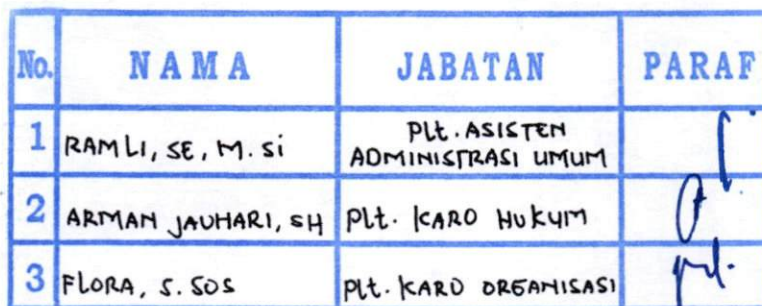 No. NAMA JABATAN PARAF
1 RAMLI, SE, M. Si Plt. ASISTEN
ADMINISTRASI UMUM
2 ARMAN JAUHARI, SH Plt. KARO HUKUM
3 FLORA, S. SOS Plt. KARO ORGANISASI